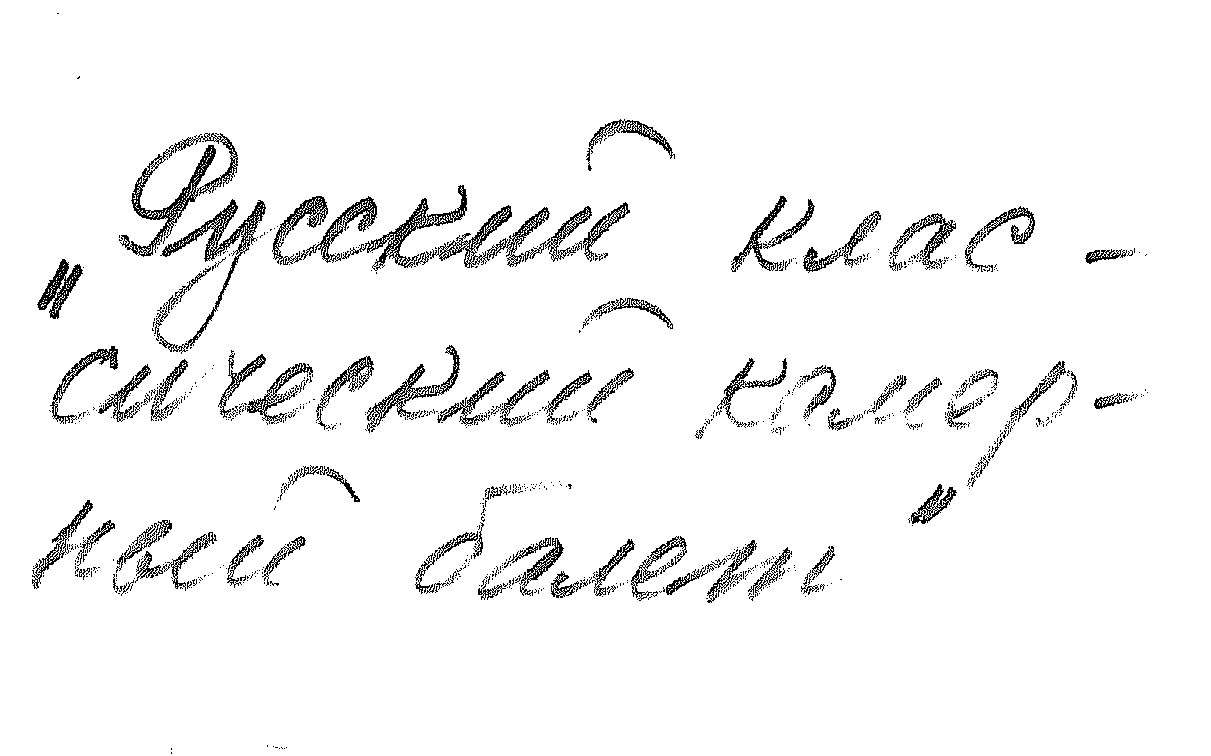 „Русский клас-
сический камер-
ный балет"